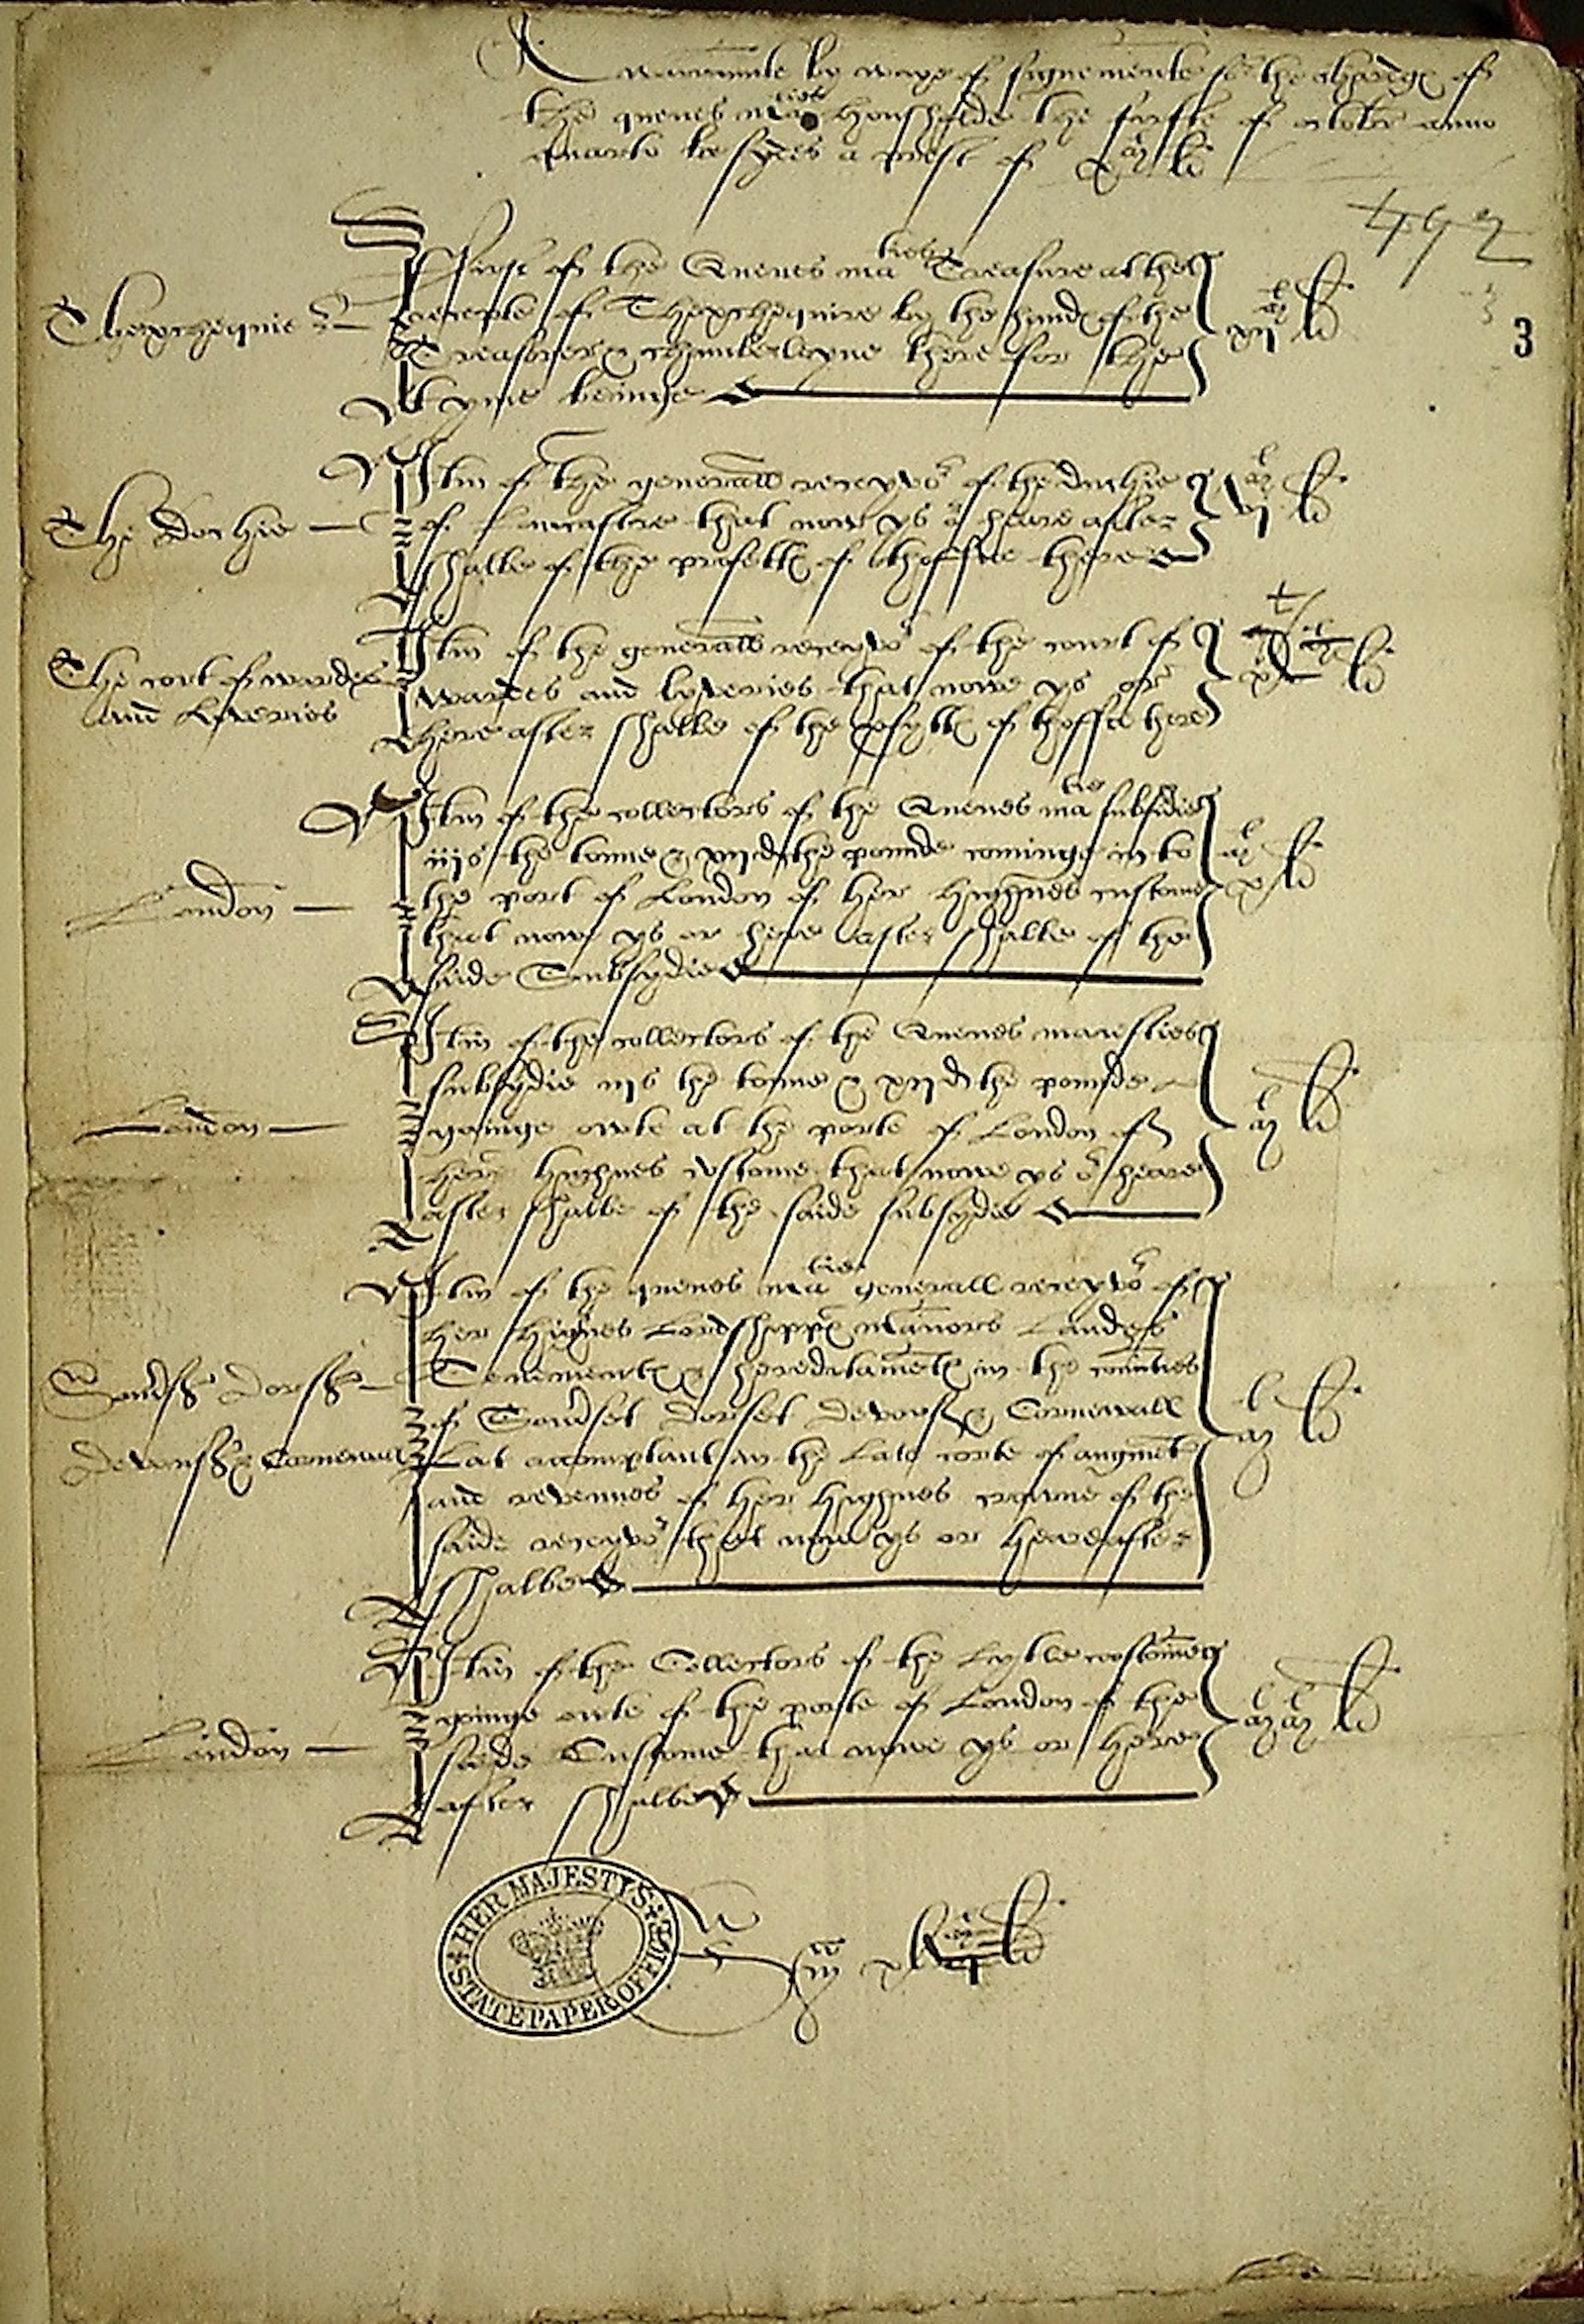 A warraunte by waye of signemente for the chardgℯ of
the quenes maties housholde the firste of october anno
quarto besydes a prest of li
492
3
Thexchequier
First of the Quenes maties Treasure at the
receipte of Thexchequire by the handℯ of the
Treasorer & chamberleyne there for the
tyme beinge
li
The Duchie
Itm of the generall receyvor of the duchie
of Lancastre that now ys or heare after
shalbe of the profettℯ of thoffice there
li
The cort of wardes
and Liveries
Itm of the generall receyvor of the court of
wardes and lyveries that nowe ys or
hereafter shalbe of the profyttℯ of thoffice there
li
London
Itm of the collectors of the Quenes matie subsidie
iijs the tonne & xijd the pounde cominge in to
the port of London of her highnes custome
that now ys or here after shalbe of the
saide Subsydie
li
London
Itm of the collectors of the Quenes maiesties
subsydie iijs the tonne & xijd the pounde
goinge owte at the porte of London of
her highnes custome that nowe ys or heare
after shalbe of the saide subsydie
li
Somersℯ Dorsℯ
Devonsℯ & Cornewall
Itm of the quenes maties generall receyvor of
her highnes Lordshippℯ manors Landes
Tenementℯ & hereditamentℯ in the counties
of Somerset Dorset Devonsℯ & Cornewall
Lat accomptant in the Late corte of augment
and revenues of her highnes crowne of the
saide receyvor that now ys or heareafter
shalbe
li
London
Itm of the Collectors of the Lytle custome
goinge owte of the porte of London of the
saide Custome that nowe ys or here
after shalbe
li
HER MAJESTY'S STATE PAPER OFFICE
Sm li